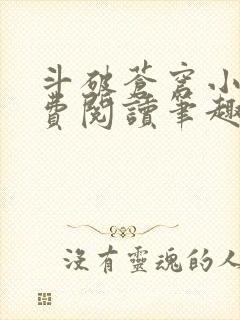 斗破苍穹小
費閱讀筆趣
沒有靈魂的人